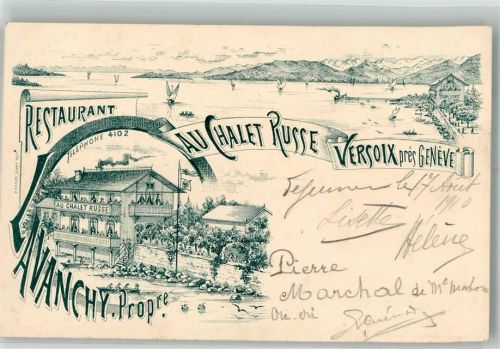 RESTAURANT
TELEPHONE 4102
AU CHALET RUSSE
VERSOIX près GENÈVE
AU CHALET RUSSE
AVANCHY, Propre.
Déjeuner le 17 Août
1910
Lisette
Hélène
Pierre
Marchal de Mc Mahon